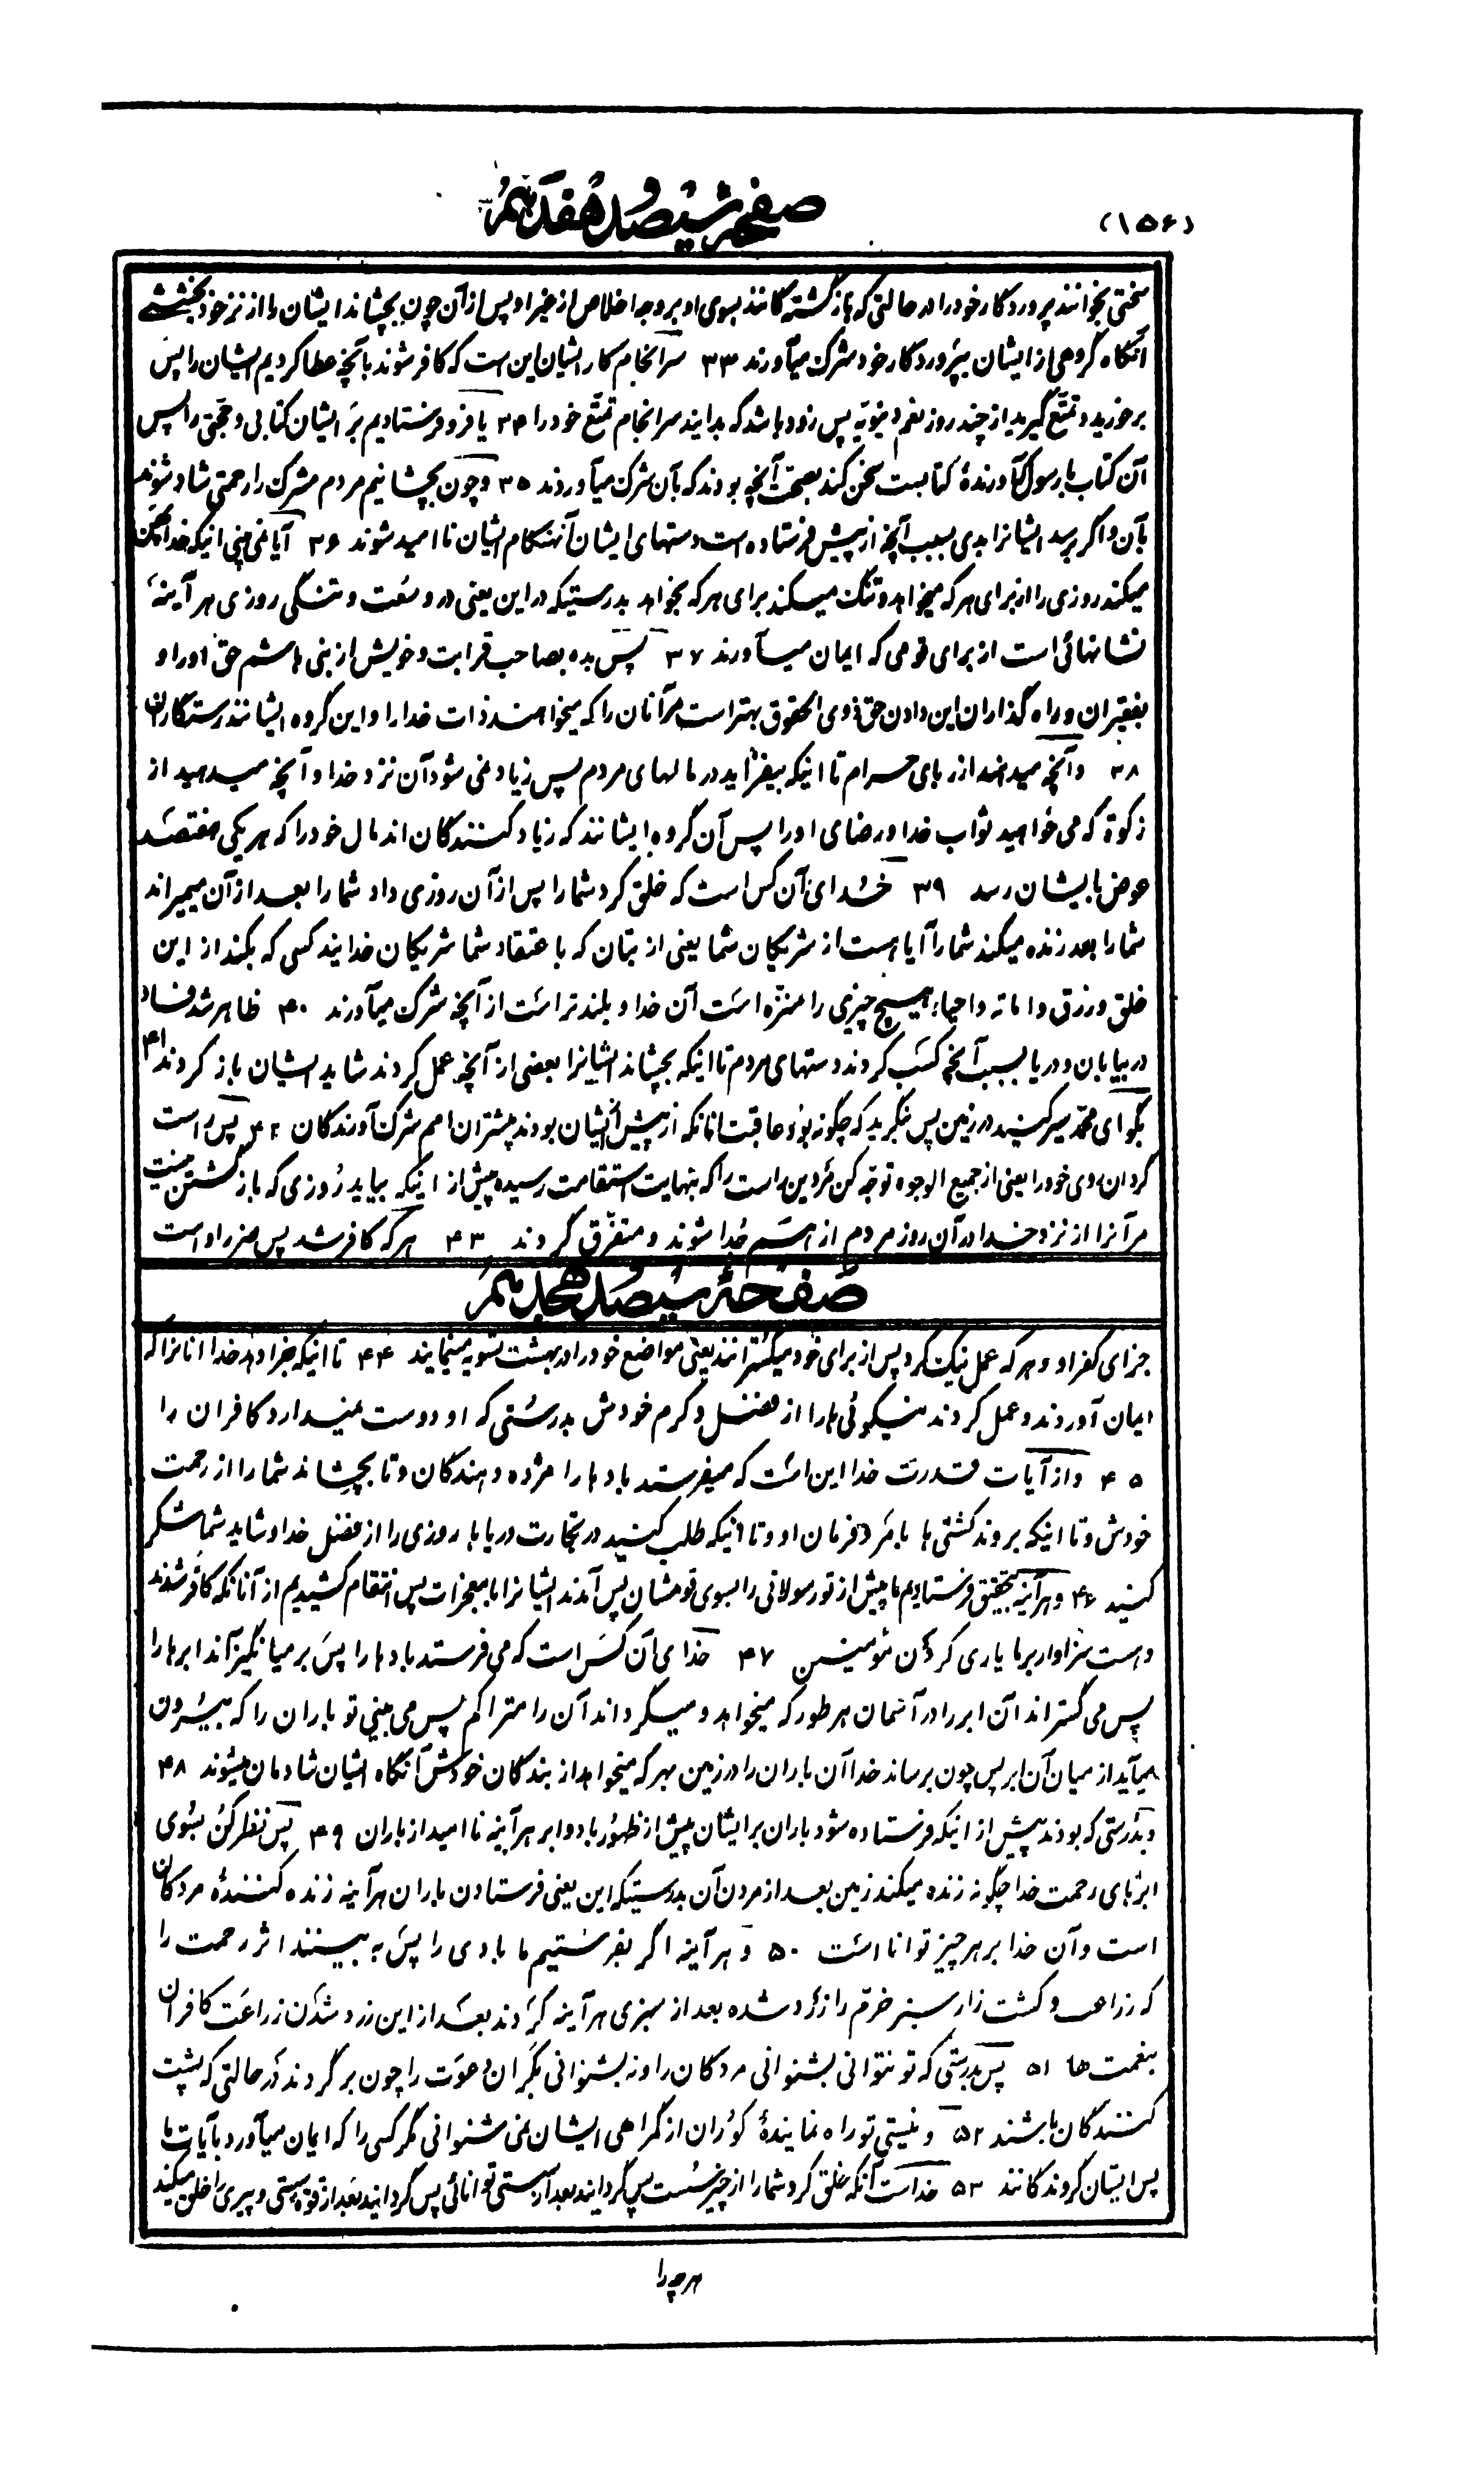 (۱۵۶)
صفحه سیصد و هفدهم
سختی بخوانند پروردکار خود را در حالتی که باز کشته کانند بسوی او بر وجه اخلاص از غیر او پس از آن چون بچشاند ایشان را از نزد خود بخششی
آنکاه کروهی از ایشان بپروردکار خود شرک میآورند ۳۳ سرانجام کار ایشان این است که کافر شوند بآنچه عطا کردیم ایشان را پس
برخورید و تمتّع کیرید از چند روز نعم دنیویّه پس زود باشد که بدانید سرانجام تمتّع خود را ۳۴ یا فرو فرستادیم بر ایشان کتابی و حجّتی را پس
آن کتاب یا رسول آورندهٔ کتابست سخن کند بصحت آنچه بودند که بآن شرک میآوردند ۳۵ و چون بچشانیم مردم مشرک را رحمتی شاد شوند
بآن و اکر برسد ایشانرا بدی بسبب آنچه از پیش فرستاده است دستهای ایشان آنهنکام ایشان نا امید شوند ۳۶ آیا نمی بینی اینکه خدا پهن
میکند روزی را از برای هر که میخواهد و تنک میکند برای هر که بخواهد بدرستیکه در این یعنی در وسعت و تنکی روزی هر آینهٔ
نشانهائی است از برای قومی که ایمان میآورند ۳۷ پس بده بصاحب قرابت و خویش از بنی هاشم حق او را و
بفقیران و راه کذاران این دادن حق ذوی الحقوق بهتر است مر آنان را که میخواهند ذات خدا را و این کروه ایشانند رستکاران
۳۸ و آنچه میدهند از ربای حرام تا اینکه بیفزاید در مالهای مردم پس زیاد نمی شود آن نزد خدا و آنچه میدهید از
زکوة که می خواهید ثواب خدا و رضای او را پس آن کروه ایشانند که زیاد کنندکان اند مال خود را که هر یکی هفتصد
عوض بایشان رسد ۳۹ خدای آن کس است که خلق کرد شما را پس از آن روزی داد شما را بعد از آن میمیراند
شما را بعد زنده میکند شما را آیا هست از شریکان شما یعنی از بتان که با عتقاد شما شریکان خدایند کسی که بکند از این
خلق و رزق و اماته و احیاء هیچ چیزی را منزّه است آن خدا و بلندتر است از آنچه شرک میآورند ۴۰ ظاهر شد فساد
در بیابان و دریا بسبب آنچه کسب کردند دستهای مردم تا اینکه بچشاند ایشانرا بعضی از آنچه عمل کردند شاید ایشان باز کردند ۴۱
بکو ای محمّد سیر کنید در زمین پس بنکرید که چکونه بود عاقبت انانکه از پیش ایشان بودند بیشتران امم شرک آورندکان ۴۲ پس راست
کردان روی خود را یعنی از جمیع الوجوه توجّه کن مر دین راست را که بنهایت استقامت رسیده پیش از اینکه بیاید روزی که باز کشتن نیست
مر آنرا از نزد خدا در آن روز مردم از هم جدا شوند و متفرّق کردند ۴۳ هر که کافر شد پس ضرر او است
صفحهٔ سیصد هجدهم
جزای کفر او و هر که عمل نیک کرد پس از برای خود میکسترانند یعنی مواضع خود را در بهشت تسویه مینمایند ۴۴ تا اینکه جزا دهد خدا انانرا که
ایمان آوردند و عمل کردند نیکوئی ها را از فضل و کرم خودش بدرستی که او دوست نمیدارد کافران را
۴۵ و از آیات قدرت خدا این است که میفرستد بادها را مژده دهندکان و تا بچشاند شما را از رحمت
خودش و تا اینکه بروند کشتی ها بامر و فرمان او و تا اینکه طلب کنید در تجارت دریاها روزی را از فضل خدا و شاید شما شکر
کنید ۴۶ و هر آینه بتحقیق فرستادیم ما پیش از تو رسولانی را بسوی قومشان پس آمدند ایشانرا با معجزات پس انتقام کشیدیم از آنانکه کافر شدند
و هست سزاوار بر ما یاری کردن مؤمنین ۴۷ خدای آن کس است که می فرستد بادها را پس بر میانکیزآند ابرها را
پس می کستراند آن ابر را در آسمان هر طور که میخواهد و میکرداند آن را متراکم پس می بینی تو باران را که بیرون
میآید از میان آن ابر پس چون برساند خدا آن باران را در زمین بهر که میخواهد از بندکان خودش آنکاه ایشان شادمان میشوند ۴۸
و بدرستی که بودند پیش از اینکه فرستاده شود باران بر ایشان پیش از ظهور باد و ابر هر آینه نا امید از باران ۴۹ پس نظر کن بسوی
اثرهای رحمت خدا چکونه زنده میکند زمین بعد از مردن آن بدرستیکه این یعنی فرستادن باران هر آینه زنده کنندهٔ مردکان
است و آن خدا بر هر چیز توانا است ۵۰ و هر آینه اکر بفرستیم ما بادی را پس به بینند اثر رحمت را
که زراعت و کشت زار سبز خرّم را زرد شده بعد از سبزی هر آینه کردند بعد از این زرد شدن زراعت کافران
بنعمت ها ۵۱ پس بدرستی که تو نتوانی بشنوانی مردکان را و نه بشنوانی بکران دعوت را چون بر کردند در حالتی که پشت
کنندکان باشند ۵۲ و نیستی تو راه نمایندهٔ کوران از کمراهی ایشان نمی شنوانی مکر کسی را که ایمان میآورد بآیات ما
پس ایشان کروندکانند ۵۳ خداست آنکه خلق کرد شما را از چیز سست پس کردانید بعد از سستی توانائی پس کردانید بعد از قوّه سستی و پیری را خلق میکند
هرچه را